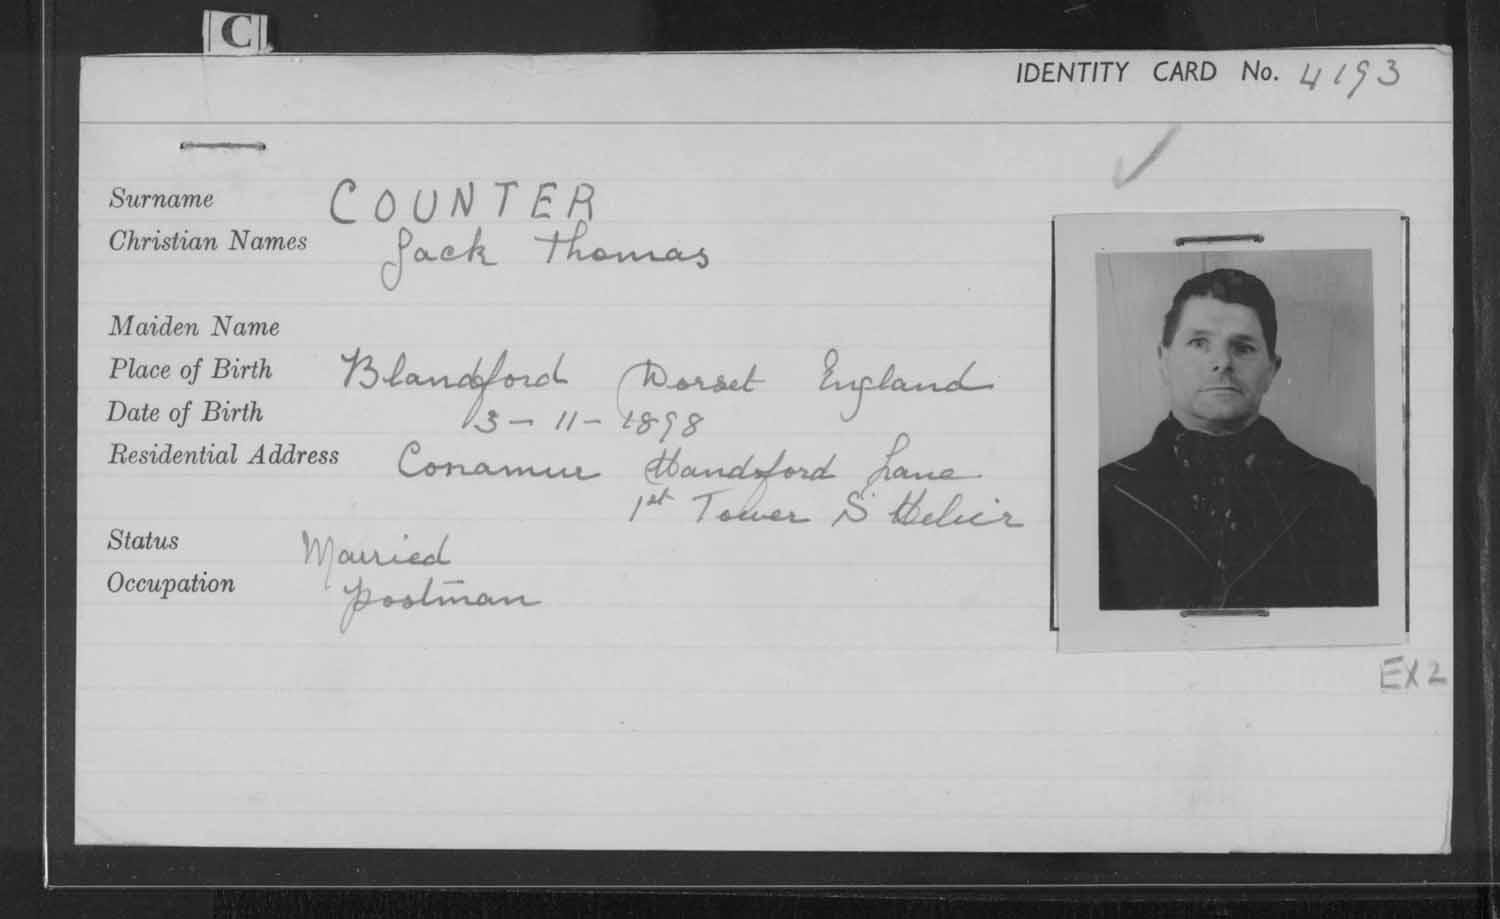 C
IDENTITY CARD No. 4193
Surname COUNTER
Christian Names Jack Thomas
Maiden Name
Place of Birth Blandford Dorset England
Date of Birth 3-11-1898
Residential Address Conamur Handsford Lane
1st Tower St Helier
Status Married
Occupation postman
EX2